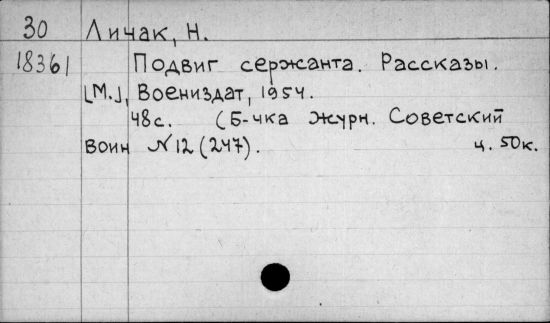 30 Личак, Н.
18361 Подвиг сержанта. Рассказы.
[М.], Воениздат, 1954.
48с. (Б-чка журн. Советский
воин №12 (247). ц. 50к.